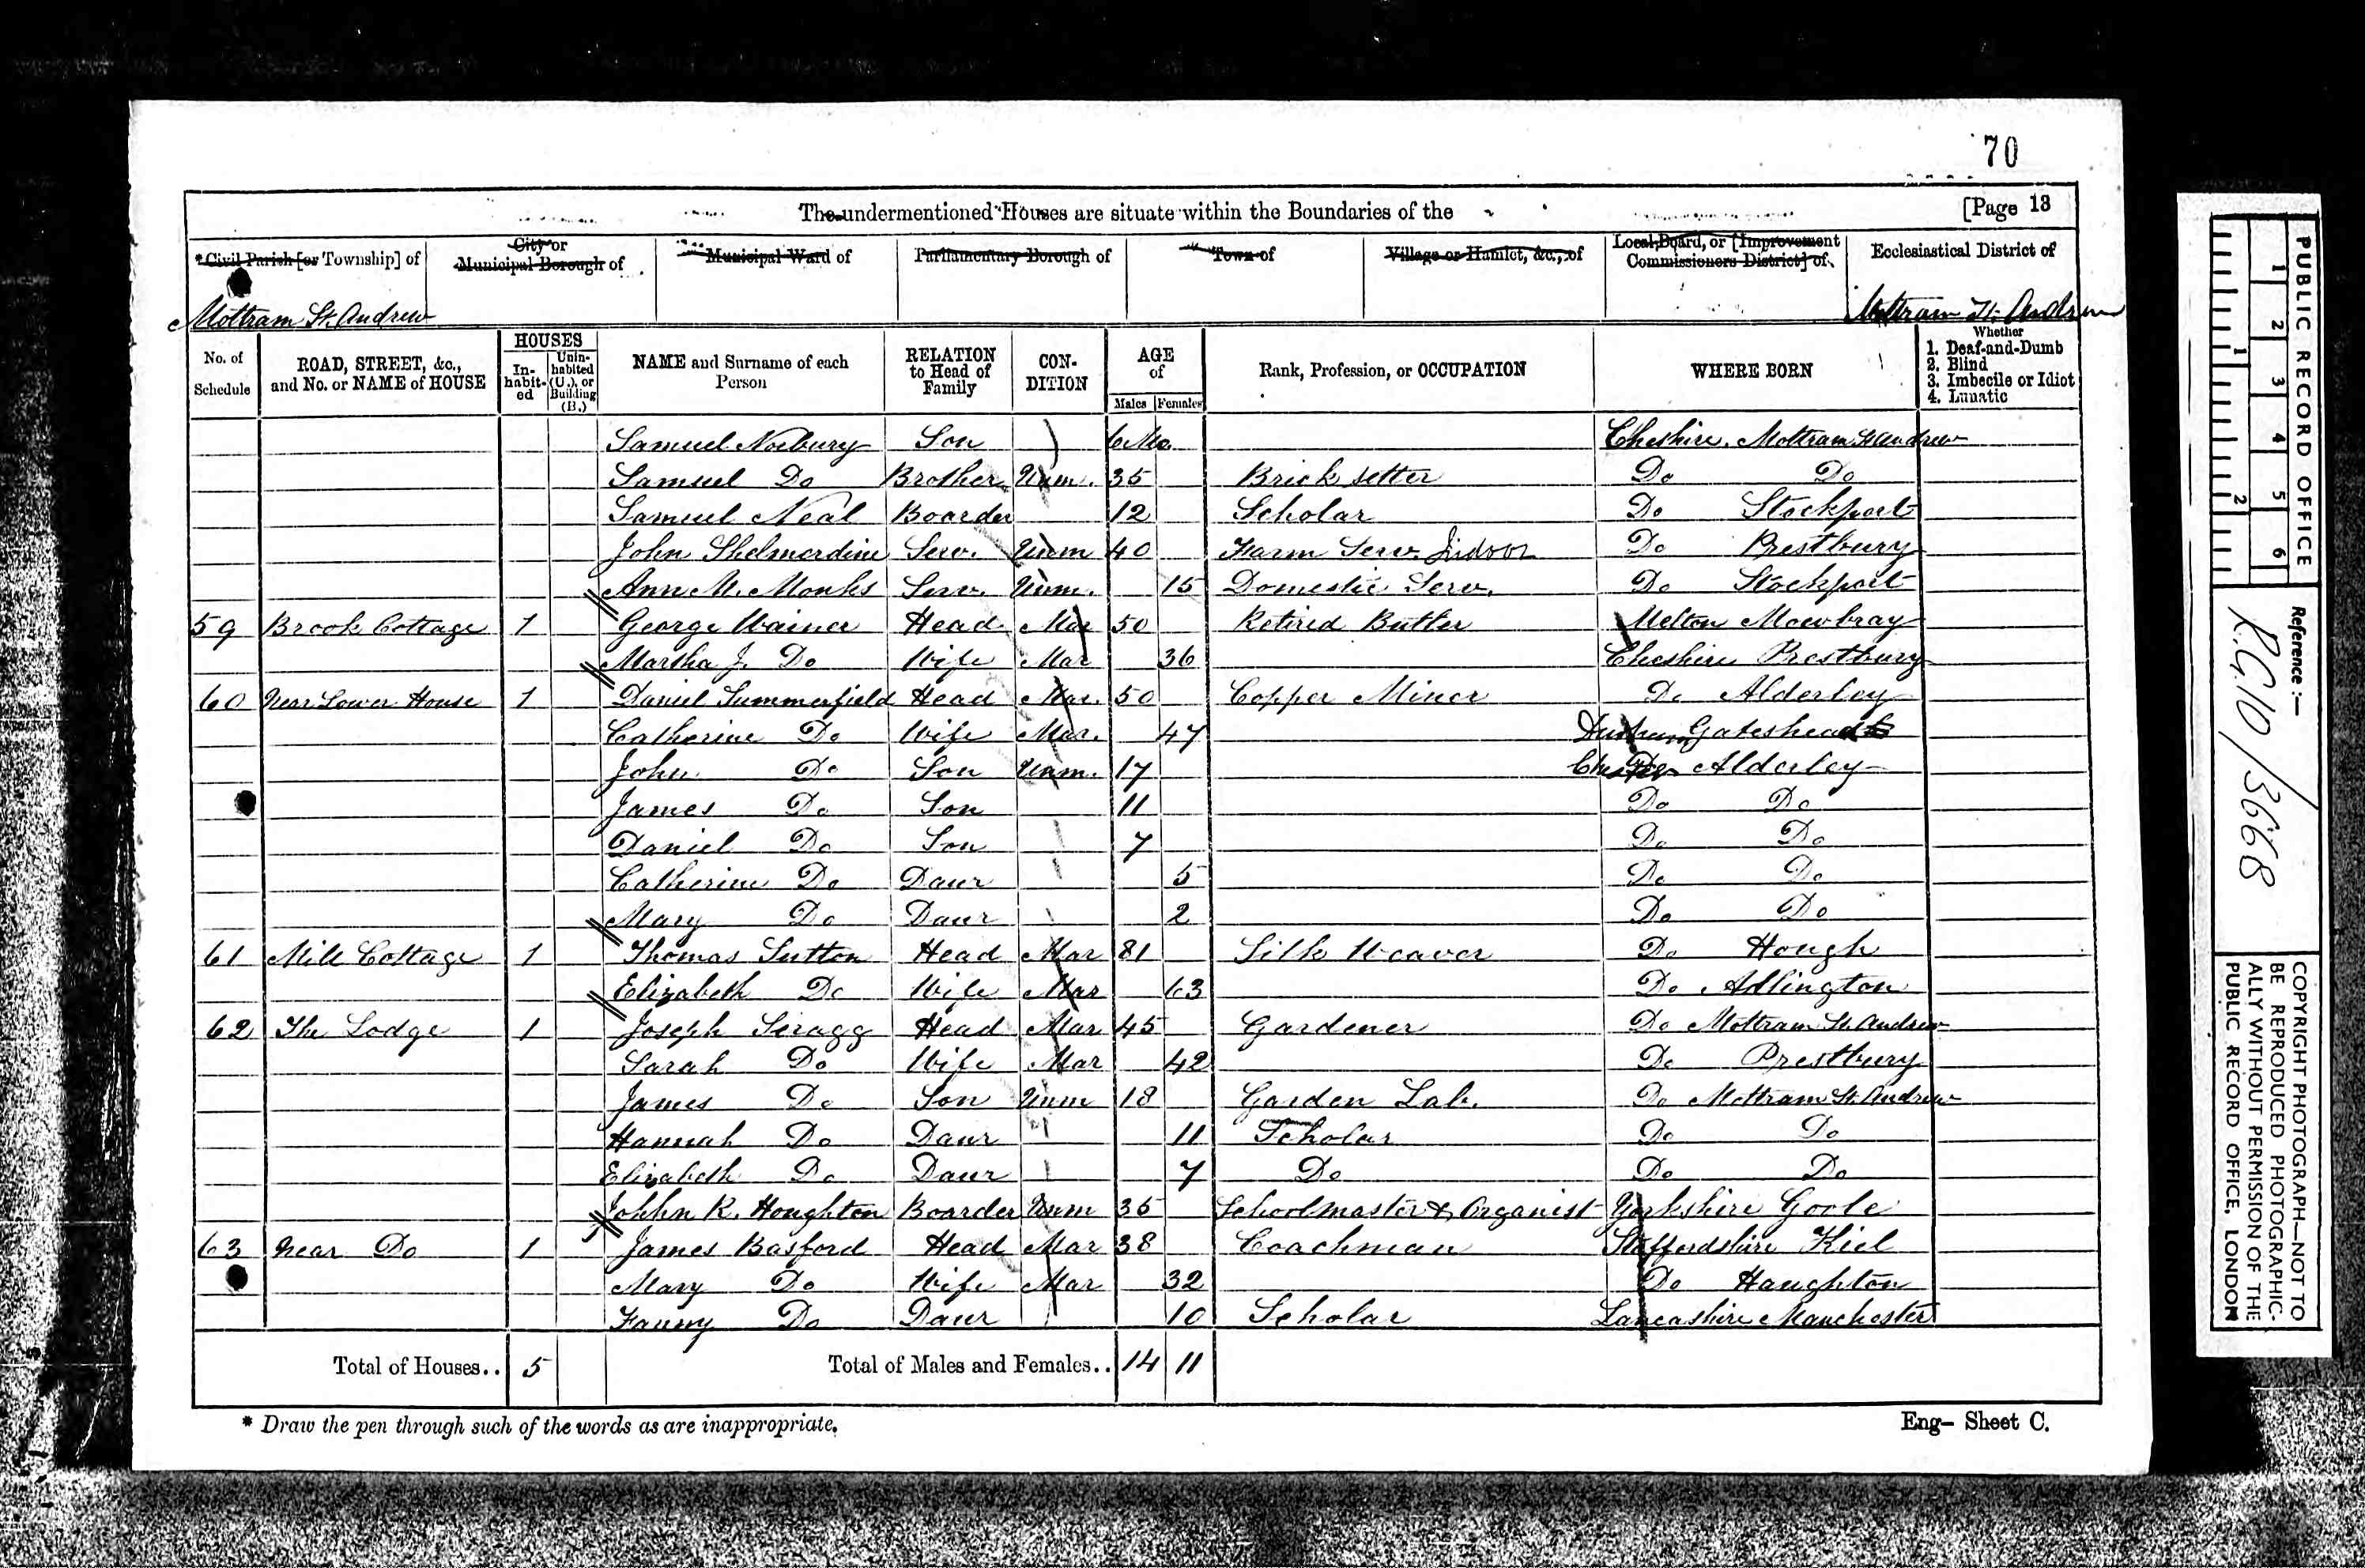 70
The undermentioned Houses are situate within the Boundaries of the [Page 13
* Civil Parish [or Township] of City or Municipal Borough of Municipal Ward of Parliamentary Borough of Town of Village or Hamlet, &c., of Local Board, or [Improvement Commissioners District] of Ecclesiastical District of
Mottram St. Andrew Mottram St. Andrew
No. of Schedule ROAD, STREET, &c., and No. or NAME of HOUSE HOUSES In-habit-ed Unin-habited (U.), or Building (B.) NAME and Surname of each Person RELATION to Head of Family CON-DITION AGE of Males Females Rank, Profession, or OCCUPATION WHERE BORN Whether 1. Deaf-and-Dumb 2. Blind 3. Imbecile or Idiot 4. Lunatic
Samuel Norbury Son 6 Mo. Cheshire. Mottram St Andrew
Samuel Do Brother Unm. 35 Brick setter Do Do
Samuel Neal Boarder 12 Scholar Do Stockport
John Shelmerdine Serv. Unm 40 Farm Serv. Indoor Do Prestbury
Ann M. Monks Serv. Unm. 15 Domestic Serv. Do Stockport
59 Brook Cottage 1 George Wainer Head Mar 50 Retired Butler Melton Mowbray
Martha J. Do Wife Mar 36 Cheshire Prestbury
60 Near Lower House 1 Daniel Summerfield Head Mar. 50 Copper Miner Do Alderley
Catherine Do Wife Mar. 47 Durham Gateshead
John Do Son Unm. 17 Alderley
James Do Son 11 Do Do
Daniel Do Son 7 Do Do
Catherine Do Daur 5 Do Do
Mary Do Daur 2 Do Do
61 Mill Cottage 1 Thomas Sutton Head Mar 81 Silk Weaver Do Hough
Elizabeth Do Wife Mar 63 Do Adlington
62 The Lodge 1 Joseph Scragg Head Mar 45 Gardener Do Mottram St. Andrew
Sarah Do Wife Mar 42 Do Prestbury
James Do Son Unm 18 Garden Lab. Do Mottram St. Andrew
Hannah Do Daur 11 Scholar Do Do
Elizabeth Do Daur 7 Do Do Do
Johhn R. Houghton Boarder Unm 35 Schoolmaster & Organist Yorkshire Goole
63 Near Do 1 James Basford Head Mar 38 Coachman Staffordshire Kiel
Mary Do Wife Mar 32 Do Haughton
Fanny Do Daur 10 Scholar Lancashire Manchester
Total of Houses.. 5 Total of Males and Females.. 14 11
* Draw the pen through such of the words as are inappropriate.
Eng- Sheet C.
PUBLIC RECORD OFFICE
1 2 3 4 5 6
1 2
Reference:—
R.G.10/3668
COPYRIGHT PHOTOGRAPH—NOT TO
BE REPRODUCED PHOTOGRAPHIC-
ALLY WITHOUT PERMISSION OF THE
PUBLIC RECORD OFFICE, LONDON